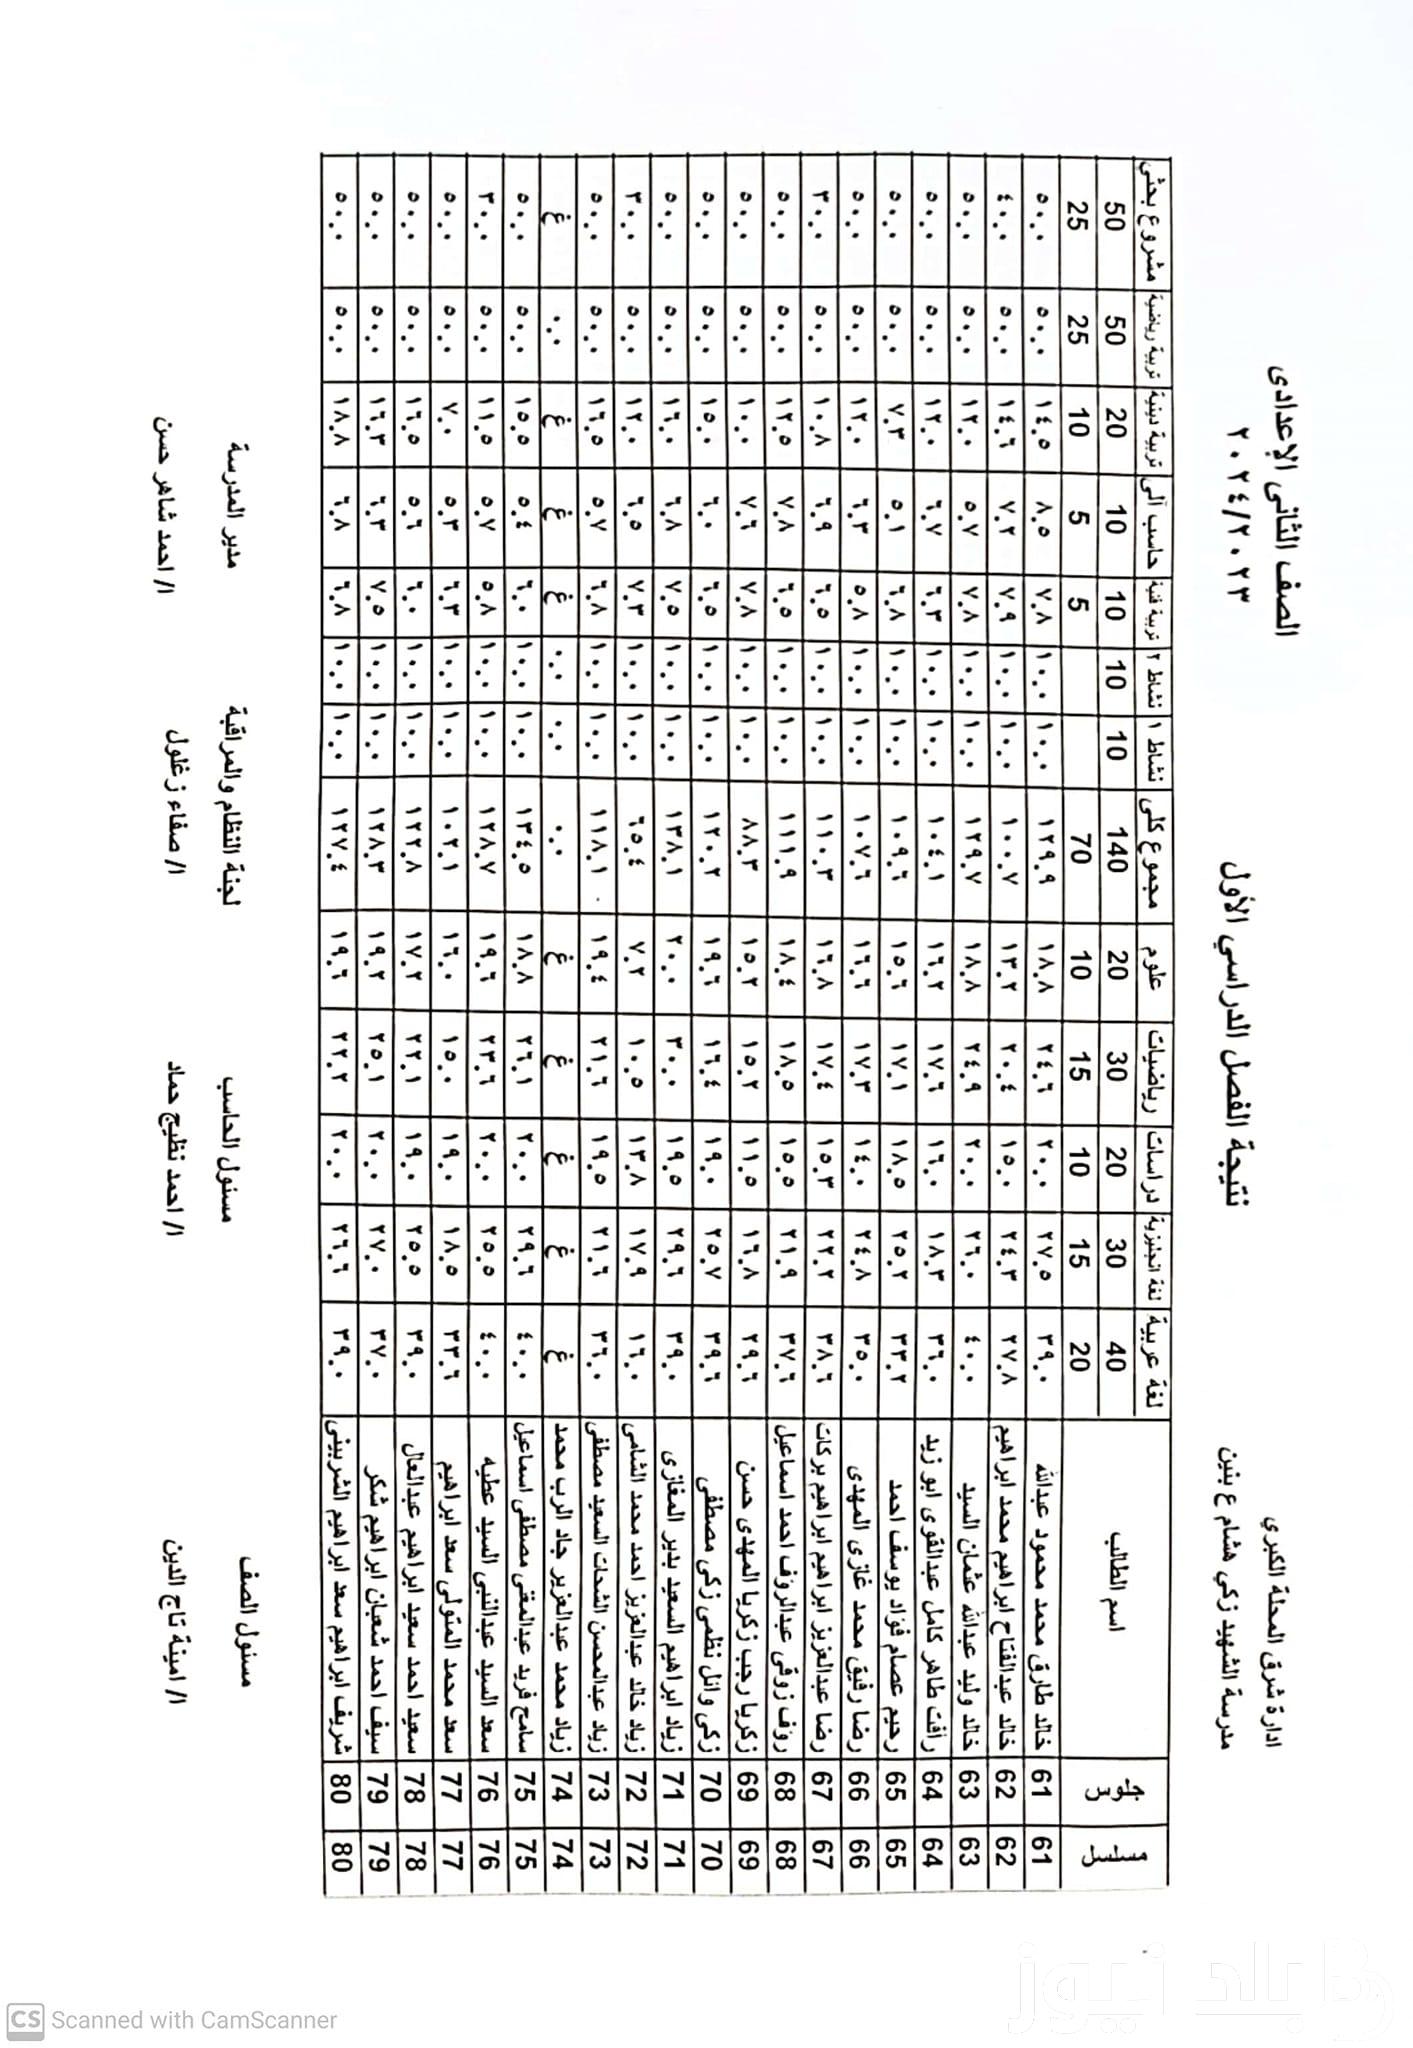 ادارة شرق المحلة الكبري
مدرسة الشهيد زكي هشام ع بنين
نتيجة الفصل الدراسي الأول
الصف الثاني الإعدادى
٢٠٢٤/٢٠٢٣
مسلسل اسم الطالب لغة عربية لغة انجليزية دراسات رياضيات علوم مجموع كلى نشاط ١ نشاط ٢ تربية فنية حاسب آلى تربية دينية تربية رياضية مشروع بحثي
40 30 20 30 20 140 10 10 10 10 20 50 50
20 15 10 15 10 70 5 5 10 25 25
61 61 خالد طارق محمد محمود عبدالله ٣٩.٠ ٢٧.٥ ٢٠.٠ ٢٤.٦ ١٨.٨ ١٢٩.٩ ١٠.٠ ١٠.٠ ٧.٨ ٨.٥ ١٤.٥ ٥٠.٠ ٥٠.٠
62 62 خالد عبدالفتاح ابراهيم محمد ابراهيم ٢٧.٨ ٢٤.٣ ١٥.٠ ٢٠.٤ ١٣.٢ ١٠٠.٧ ١٠.٠ ١٠.٠ ٧.٩ ٧.٢ ١٤.٦ ٥٠.٠ ٤٠.٠
63 63 خالد وليد عبدالله عثمان السيد ٤٠.٠ ٢٦.٠ ٢٠.٠ ٢٤.٩ ١٨.٨ ١٢٩.٧ ١٠.٠ ١٠.٠ ٧.٨ ٥.٧ ١٢.٠ ٥٠.٠ ٥٠.٠
64 64 رافت طاهر كامل عبدالقوى ابو زيد ٣٦.٠ ١٨.٣ ١٦.٠ ١٧.٦ ١٦.٢ ١٠٤.١ ١٠.٠ ١٠.٠ ٦.٣ ٦.٧ ١٢.٠ ٥٠.٠ ٥٠.٠
65 65 رحيم عصام فؤاد يوسف احمد ٣٣.٢ ٢٥.٢ ١٨.٥ ١٧.١ ١٥.٦ ١٠٩.٦ ١٠.٠ ١٠.٠ ٦.٨ ٥.١ ٧.٣ ٥٠.٠ ٥٠.٠
66 66 رضا رفيق محمد غازى المهدى ٣٥.٠ ٢٤.٨ ١٤.٠ ١٧.٣ ١٦.٦ ١٠٧.٦ ١٠.٠ ١٠.٠ ٥.٨ ٦.٣ ١٢.٠ ٥٠.٠ ٥٠.٠
67 67 رضا عبدالعزيز ابراهيم ابراهيم بركات ٣٨.٦ ٢٢.٢ ١٥.٣ ١٧.٤ ١٦.٨ ١١٠.٣ ١٠.٠ ١٠.٠ ٦.٥ ٦.٩ ١٠.٨ ٥٠.٠ ٣٠.٠
68 68 روف زوقى عبدالروف احمد اسماعيل ٣٧.٦ ٢١.٩ ١٥.٥ ١٨.٥ ١٨.٤ ١١١.٩ ١٠.٠ ١٠.٠ ٦.٥ ٧.٨ ١٢.٥ ٥٠.٠ ٥٠.٠
69 69 زكريا رجب زكريا المهدى حسن ٢٩.٦ ١٦.٨ ١١.٥ ١٥.٢ ١٥.٢ ٨٨.٣ ١٠.٠ ١٠.٠ ٧.٨ ٧.٦ ١٠.٠ ٥٠.٠ ٥٠.٠
70 70 زكى وائل نظمى زكى مصطفى ٣٩.٦ ٢٥.٧ ١٩.٠ ١٦.٤ ١٩.٦ ١٢٠.٢ ١٠.٠ ١٠.٠ ٦.٥ ٦.٠ ١٥.٠ ٥٠.٠ ٥٠.٠
71 71 زياد ابراهيم السعيد بدير المغازى ٣٩.٠ ٢٩.٦ ١٩.٥ ٣٠.٠ ٢٠.٠ ١٣٨.١ ١٠.٠ ١٠.٠ ٧.٥ ٦.٨ ١٦.٠ ٥٠.٠ ٥٠.٠
72 72 زياد خالد عبدالعزيز احمد محمد الشامى ١٦.٠ ١٧.٩ ١٣.٨ ١٠.٥ ٧.٢ ٦٥.٤ ١٠.٠ ١٠.٠ ٧.٣ ٦.٥ ١٢.٠ ٥٠.٠ ٣٠.٠
73 73 زياد عبدالمحسن الشحات السعيد مصطفى ٣٦.٠ ٢١.٦ ١٩.٥ ٢١.٦ ١٩.٤ ١١٨.١ ١٠.٠ ١٠.٠ ٦.٨ ٥.٧ ١٦.٥ ٥٠.٠ ٥٠.٠
74 74 زياد محمد عبدالعزيز جاد الرب محمد غ غ غ غ غ ٠.٠ ٠.٠ ٠.٠ غ غ غ ٠.٠ غ
75 75 سامح فريد عبدالمغنى مصطفى اسماعيل ٤٠.٠ ٢٩.٦ ٢٠.٠ ٢٦.١ ١٨.٨ ١٣٤.٥ ١٠.٠ ١٠.٠ ٦.٠ ٥.٤ ١٥.٥ ٥٠.٠ ٥٠.٠
76 76 سعد السيد عبدالنبى السيد عطيه ٤٠.٠ ٢٥.٥ ٢٠.٠ ٢٣.٦ ١٩.٦ ١٢٨.٧ ١٠.٠ ١٠.٠ ٥.٨ ٥.٧ ١١.٥ ٥٠.٠ ٣٠.٠
77 77 سعد محمد المتولى سعد ابراهيم ٣٣.٦ ١٨.٥ ١٩.٠ ١٥.٠ ١٦.٠ ١٠٢.١ ١٠.٠ ١٠.٠ ٦.٣ ٥.٣ ٧.٠ ٥٠.٠ ٥٠.٠
78 78 سعيد احمد سعيد ابراهيم عبدالعال ٣٩.٠ ٢٥.٥ ١٩.٠ ٢٢.١ ١٧.٢ ١٢٢.٨ ١٠.٠ ١٠.٠ ٦.٠ ٥.٦ ١٦.٥ ٥٠.٠ ٥٠.٠
79 79 سيف احمد شعبان ابراهيم شكر ٣٧.٠ ٢٧.٠ ٢٠.٠ ٢٥.١ ١٩.٢ ١٢٨.٣ ١٠.٠ ١٠.٠ ٧.٥ ٦.٣ ١٦.٣ ٥٠.٠ ٥٠.٠
80 80 شريف ابراهيم سعد ابراهيم الشربينى ٣٩.٠ ٢٦.٦ ٢٠.٠ ٢٢.٢ ١٩.٦ ١٢٧.٤ ١٠.٠ ١٠.٠ ٦.٨ ٦.٨ ١٨.٨ ٥٠.٠ ٥٠.٠
مسئول الصف مسئول الحاسب لجنة النظام والمراقبة مدير المدرسة
ا/ امينة تاج الدين ا/ احمد نظيج حماد ا/ صفاء زغلول ا/ احمد شاهر حسن
بلد نيوز
CS Scanned with CamScanner